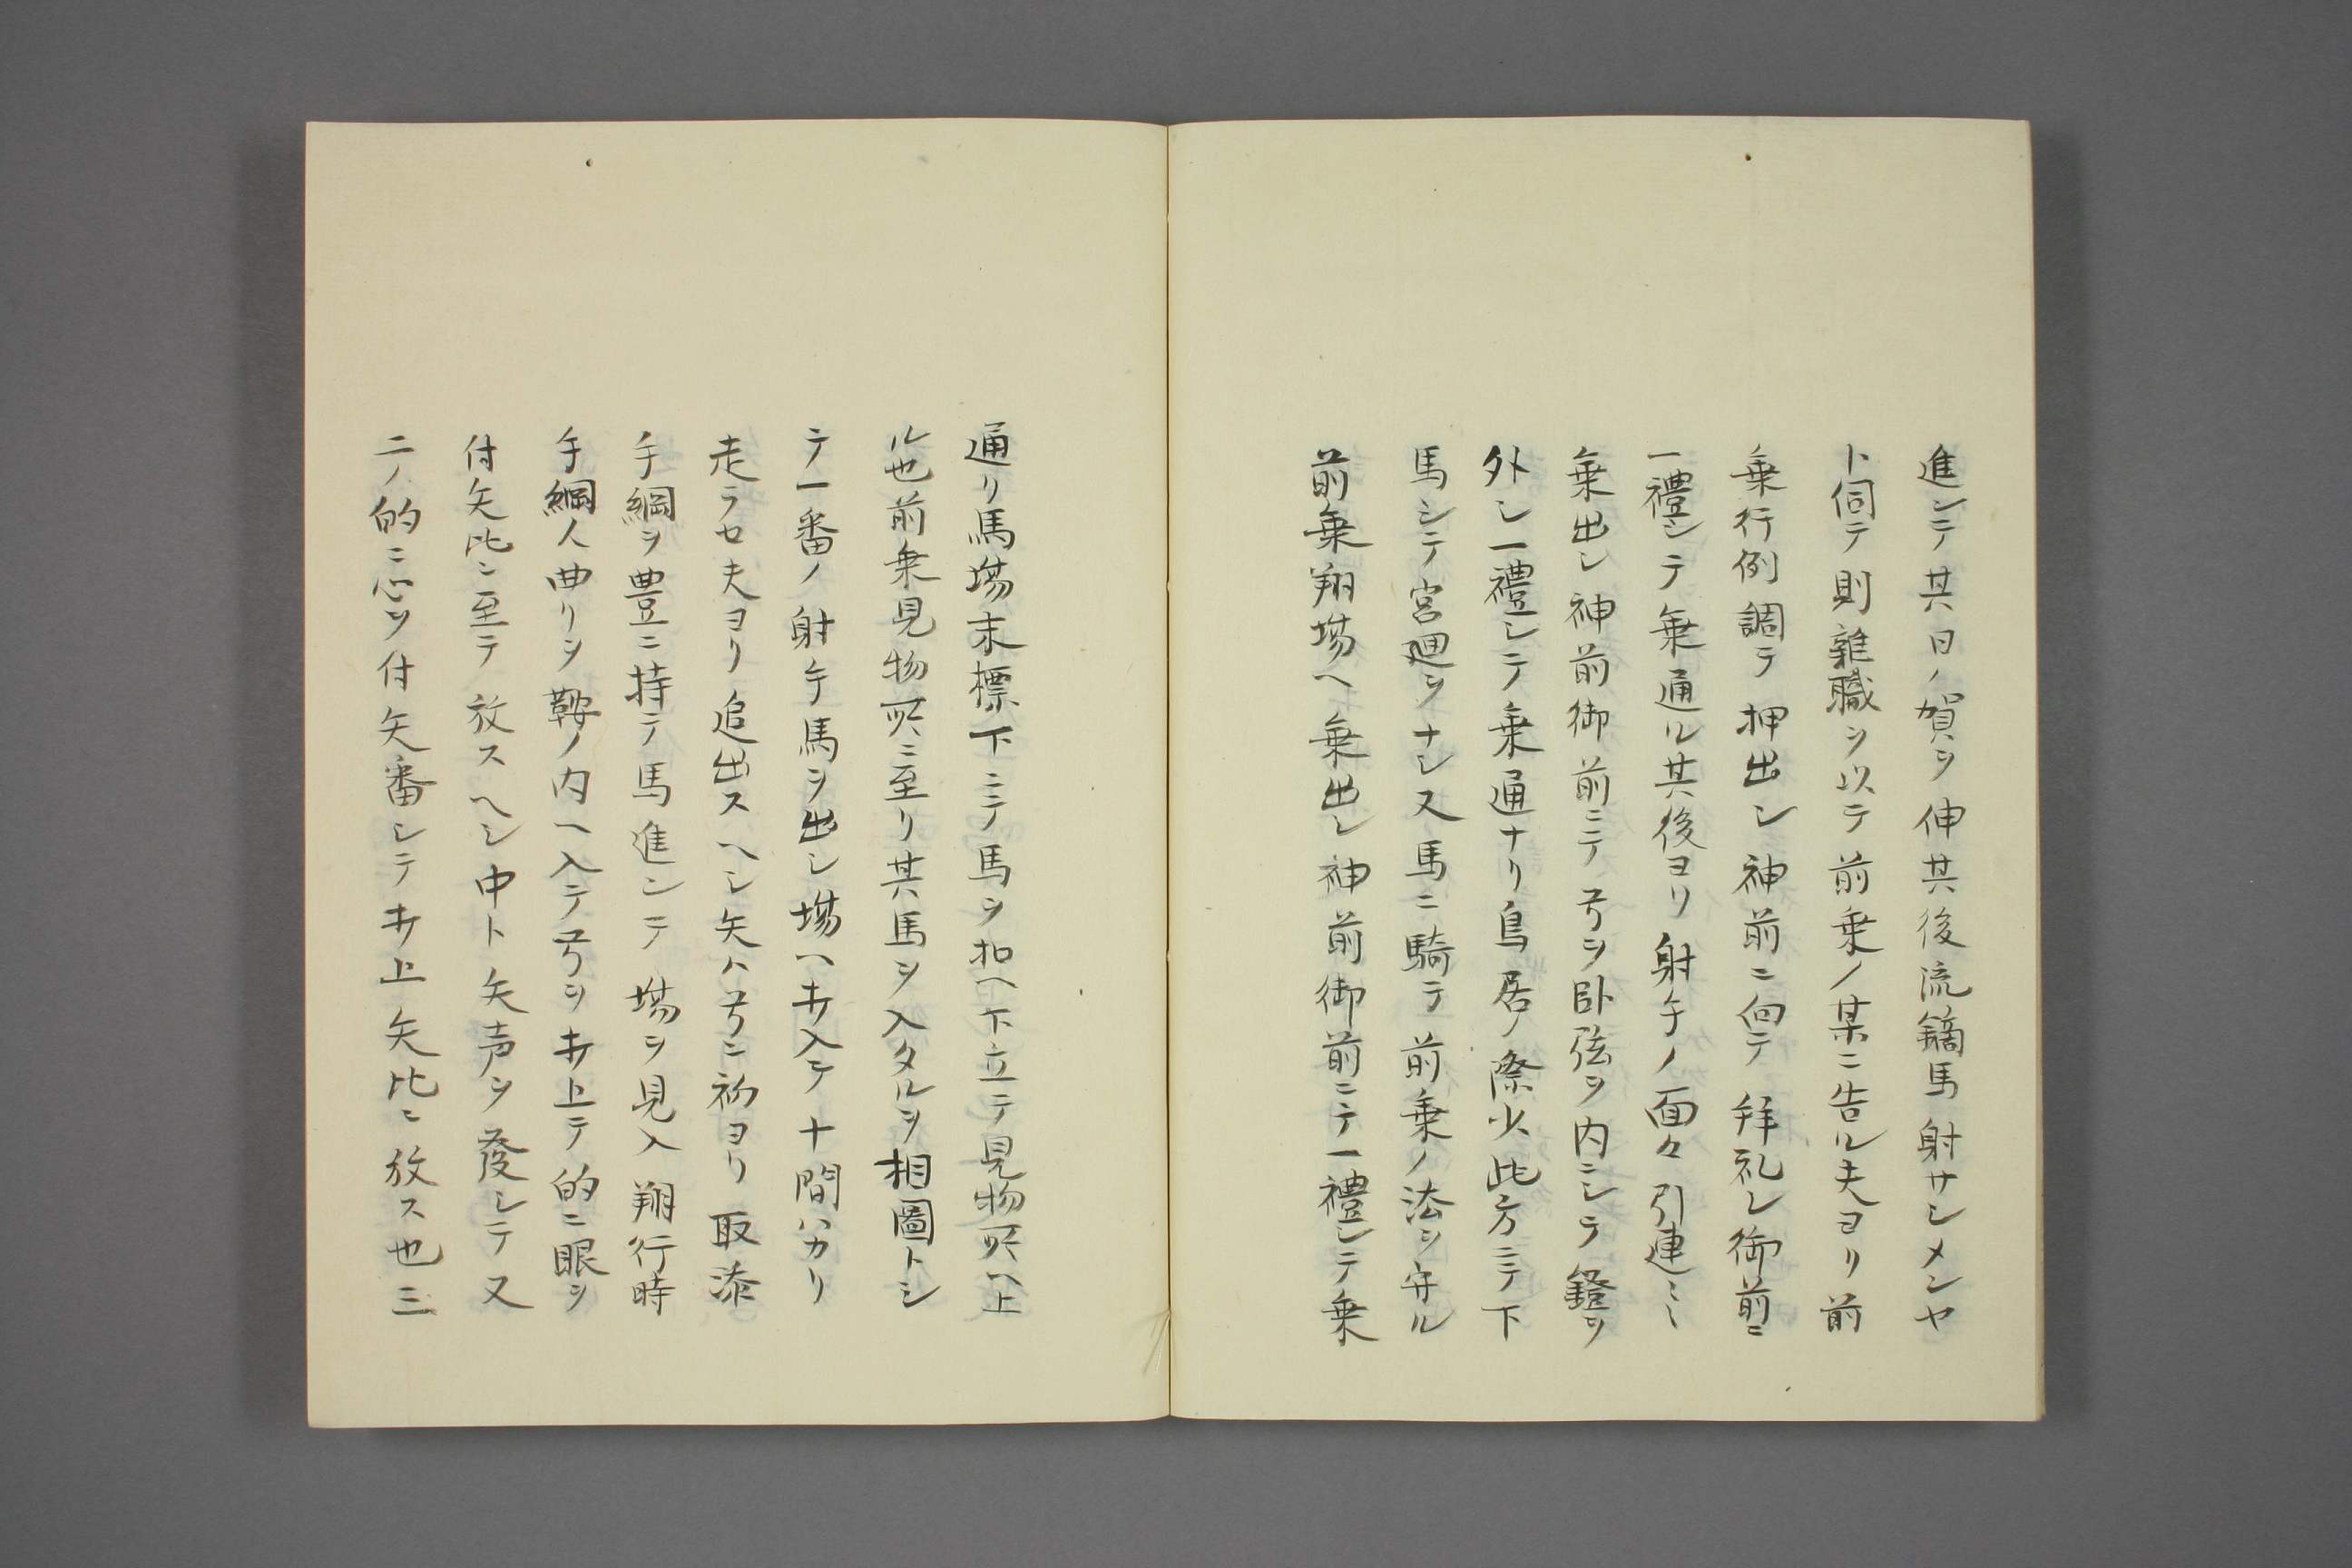 進ンテ其日ノ賀ヲ伸其後流鏑馬射サシメンヤ
ト伺テ則雑職ヲ以テ前乗ノ某ニ告ル夫ヨリ前
乗行例調テ押出シ神前ニ向テ拜礼シ御前ニ
一禮シテ乗通ル其後ヨリ射手ノ面々引連ミヽ
乗出シ神前御前ニテ弓ヲ卧弦ヲ内ニシテ鐙ヲ
外シ一禮シテ乗通ナリ鳥居ノ際少此方ニテ下
馬シテ宮廻ヲナシ又馬ニ騎テ前乗ノ法ヲ守ル
前乗翔場ヘ乗出シ神前御前ニテ一禮シテ乗
通リ馬場末標下ニテ馬ヲ扣ヘ下立テ見物所ヘ上
ル也前乗見物所ニ至リ其馬ヲ入タルヲ相圖トシ
テ一番ノ射手馬ヲ出シ場ヘ打入テ十間ハカリ
走ラセ夫ヨリ追出スヘシ矢ハ弓ニ初ヨリ取添
手綱ヲ豊ニ持テ馬進ンテ場ヲ見入翔行時
手綱人曲リヲ鞍ノ内ヘ入テ弓ヲ打上テ的ニ眼ヲ
付矢比ニ至テ放スヘシ中ト矢声ヲ發シテ又
二ノ的ニ心ヲ付矢番シテ打上矢比ニ放ス也三